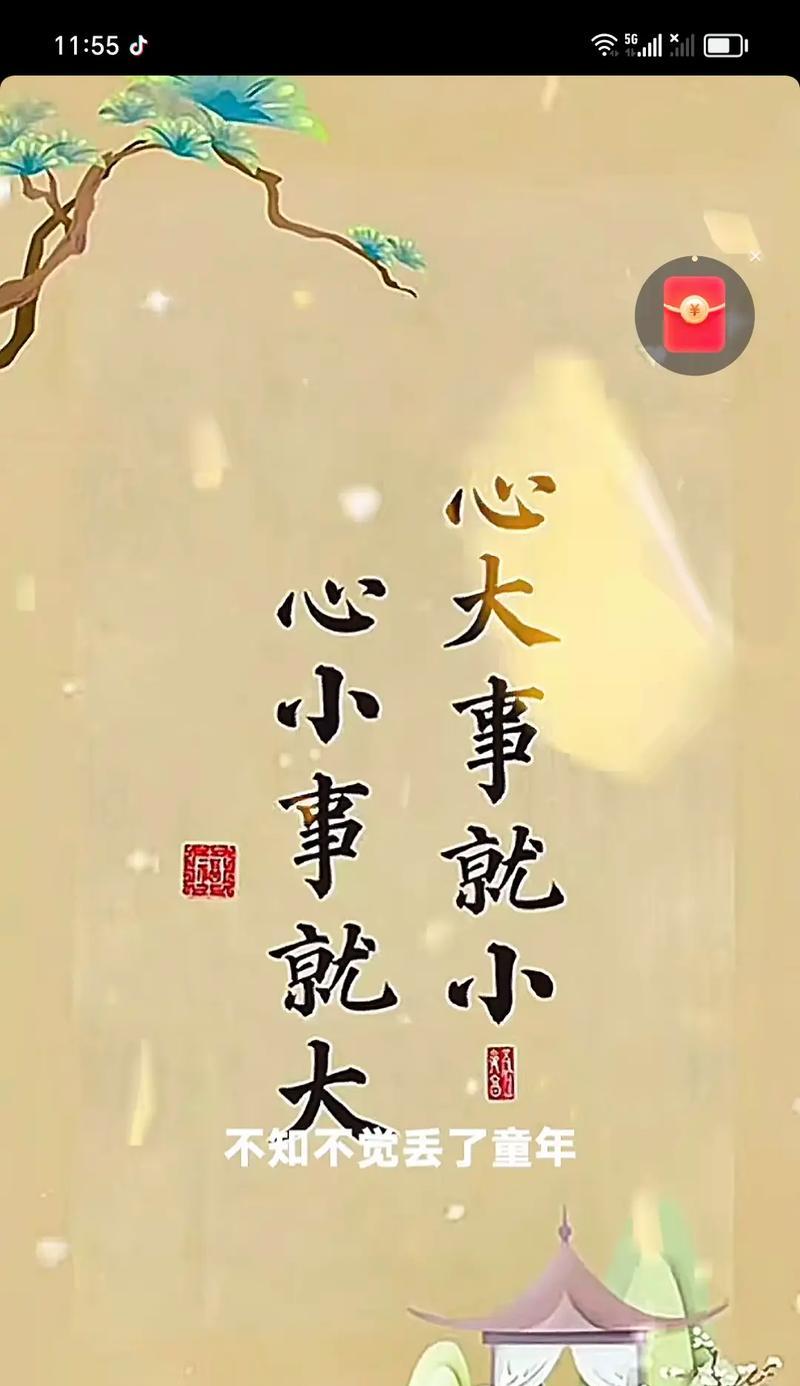 11:55
5G
¥
心大事就小
心小事就大
不知不觉丢了童年